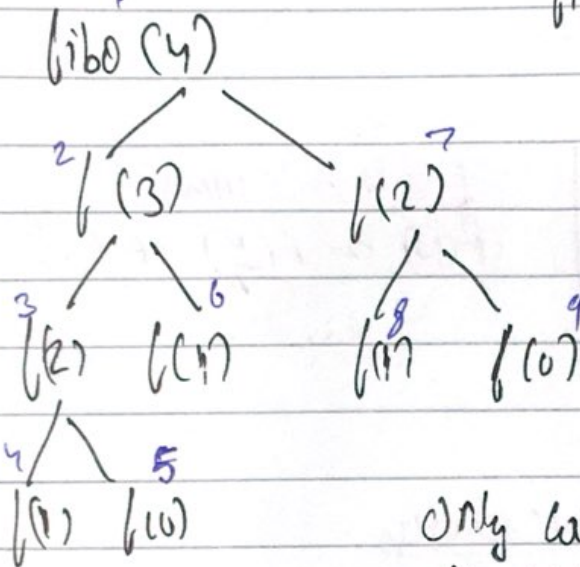 fibo (4)
2 f(3) 7 f(2)
3 f(2) 6 f(1) 8 f(1) 9 f(0)
4 f(1) 5 f(0)
Only